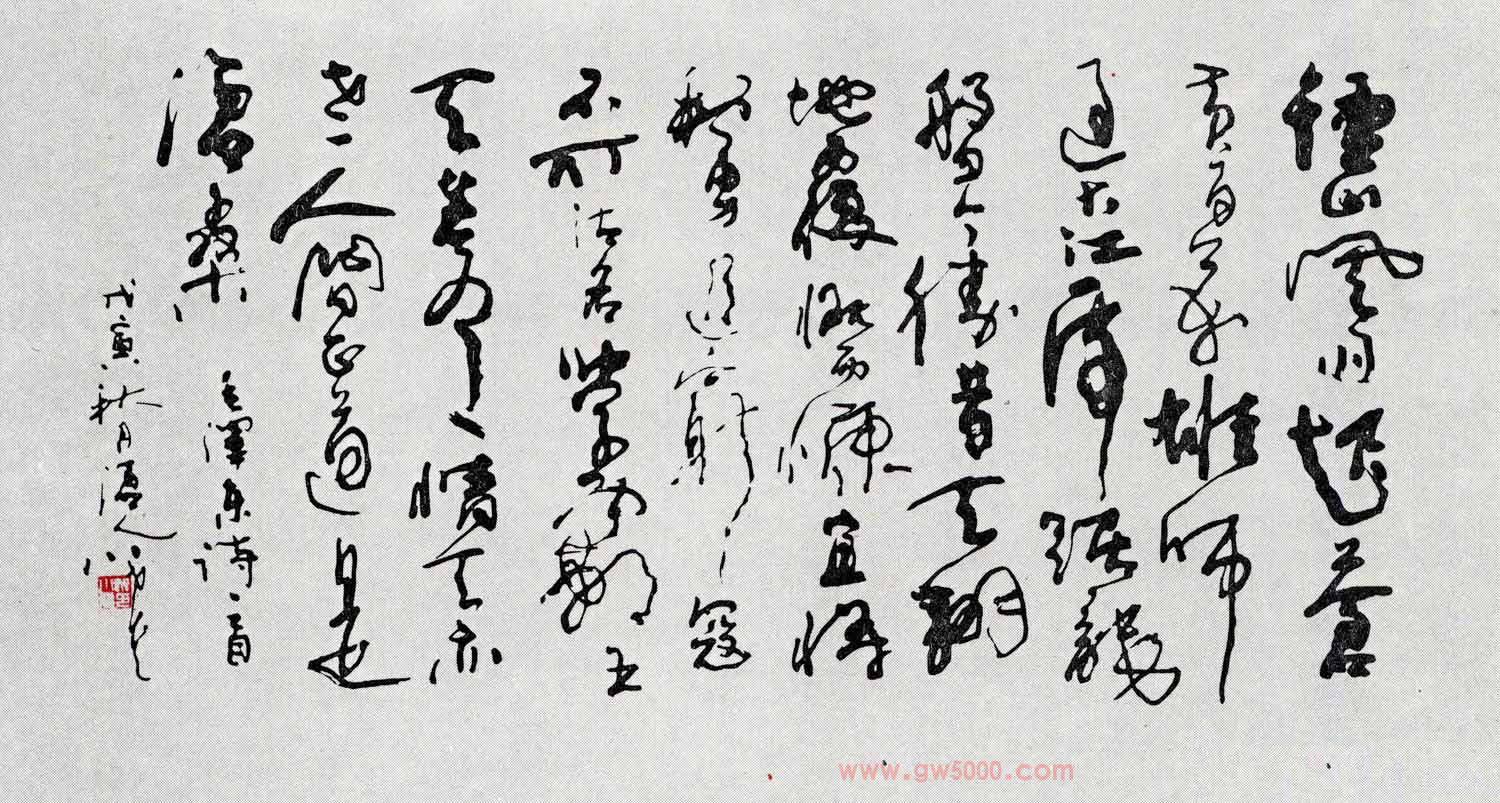 鍾山風雨起蒼
黃百萬雄師
過大江虎踞龍
盤今勝昔天翻
地覆慨而慷宜將
剩勇追窮寇
不可沽名學霸王
天若有情天亦
老人間正道是
滄桑
毛澤東詩一首
戊寅秋月
www.gw5000.com